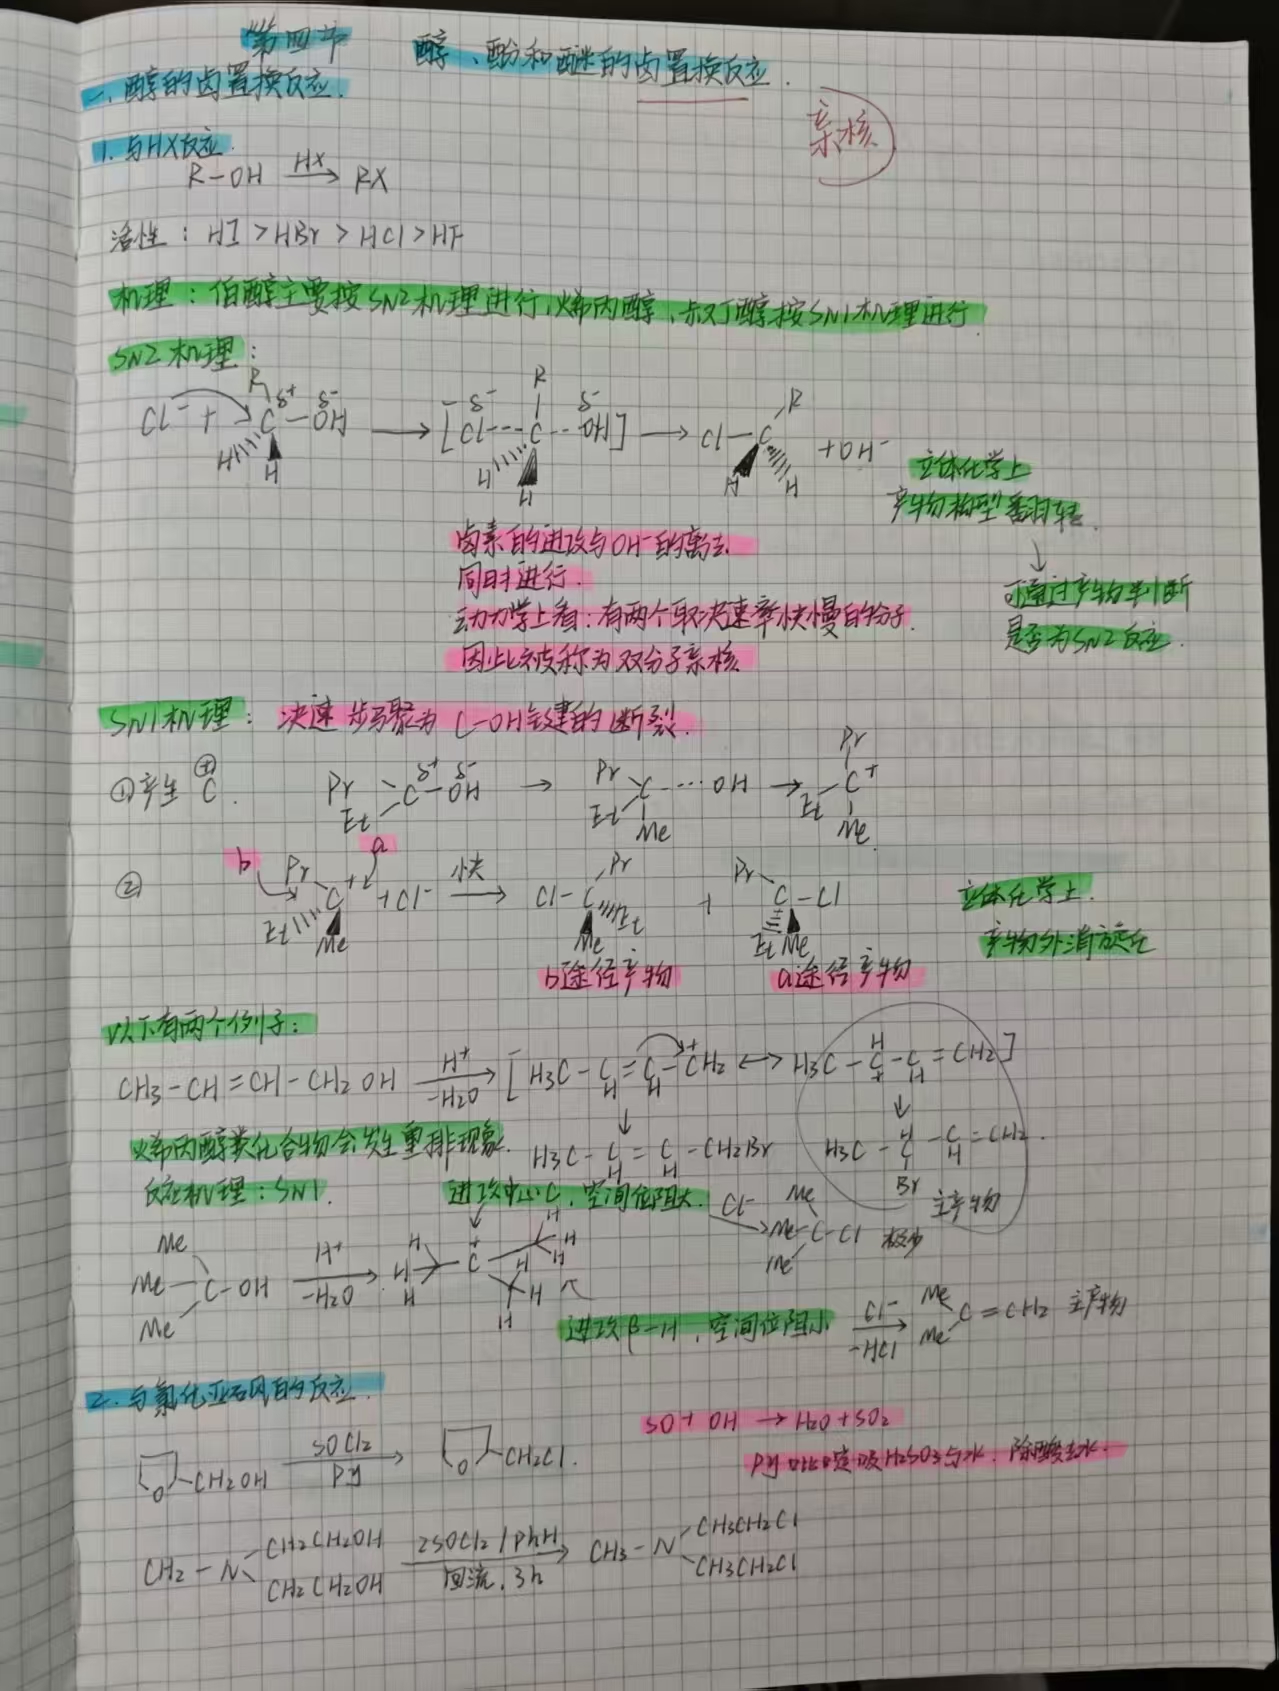 第四节 醇、酚和醚的卤置换反应.
一、醇的卤置换反应.
亲核
1. 与HX反应.
R-OH HX→ RX
活性：HI > HBr > HCl > HF
机理：伯醇主要按SN2机理进行,烯丙醇、叔丁醇按SN1机理进行
SN2机理：
Cl⁻ + R H H C δ+ — OH δ- → [ Cl δ- --- C R H H --- OH δ- ]⁻ → Cl-C R H H + OH⁻
立体化学上
产物构型翻转.
卤素的进攻与OH⁻的离去
同时进行.
↓
可通过产物判断
是否为SN2反应.
动力学上看：有两个取决速率快慢的分子.
因此被称为双分子亲核
SN1机理：决速步骤为C-OH键的断裂.
①产生 C⊕. Pr Et C δ+ — OH δ- → Pr Et Me C ··· OH → Pr Et Me C+
② b a Pr Et Me C+ + Cl⁻ 快→ Cl-C Pr Et Me + Pr Et Me C-Cl
立体化学上.
产物外消旋化
b途径产物 a途径产物
以下有两个例子：
CH3-CH=CH-CH2OH H+ -H2O → [ H3C-CH=CH-CH2+ ↔ H3C-CH+-CH=CH2 ]
烯丙醇类化合物会发生重排现象.
↓ H3C-CH=CH-CH2Br ↓ H3C-CH-CH=CH2. Br 主产物
反应机理：SN1.
进攻中心C,空间位阻大. Cl⁻ → Me Me Me C-Cl 极少
Me Me Me C-OH H+ -H2O → H H H C+ H H H H H H
进攻β-H,空间位阻小 Cl⁻ -HCl → Me Me C=CH2 主产物
2. 与氯化亚砜的反应.
SO + OH → H2O + SO2
O CH2OH SOCl2 Py → O CH2Cl.
CH2-N CH2CH2OH CH2CH2OH 2SOCl2/PhH 回流,3h → CH3-N CH3CH2Cl CH3CH2Cl